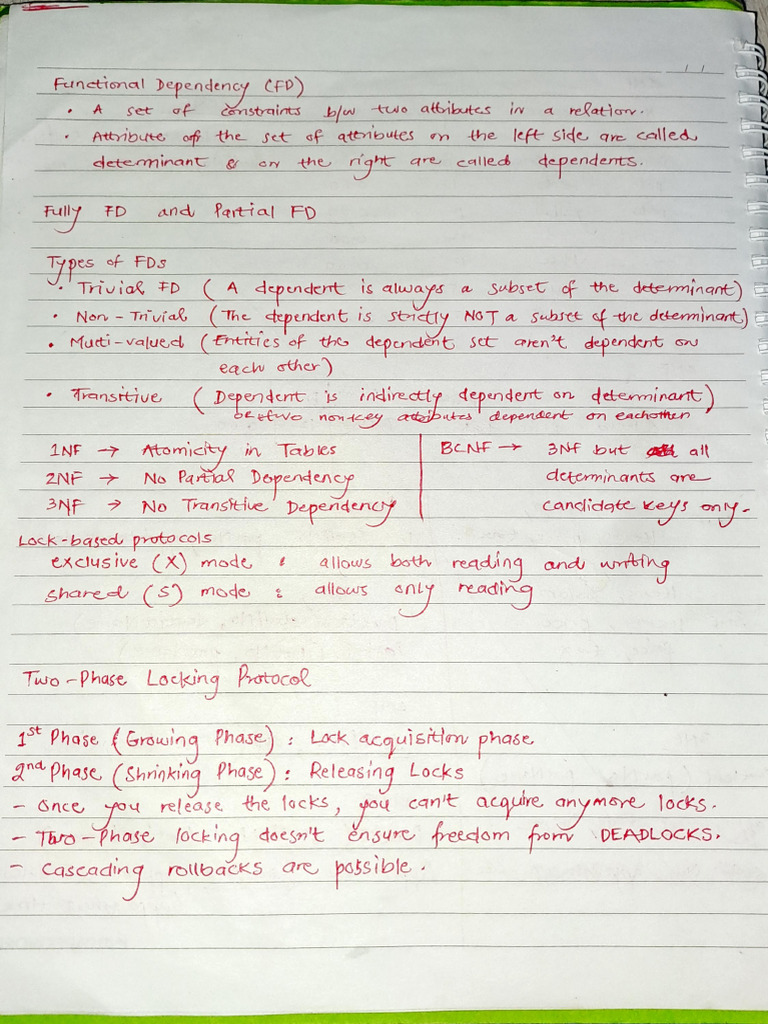 Functional Dependency (FD)
• A set of constraints b/w two attributes in a relation.
• Attribute or the set of attributes on the left side are called
determinant & on the right are called dependents.
Fully FD and Partial FD
Types of FDs
• Trivial FD ( A dependent is always a subset of the determinant)
• Non-Trivial (The dependent is strictly NOT a subset of the determinant)
• Multi-valued (Entities of the dependent set aren't dependent on
each other)
• Transitive (Dependent is indirectly dependent on determinant)
or two non-key attributes dependent on eachother
1NF → Atomicity in Tables
2NF → No Partial Dependency
3NF → No Transitive Dependency
BCNF → 3NF but all
determinants are
candidate keys only.
Lock-based protocols
exclusive (X) mode : allows both reading and writing
shared (S) mode : allows only reading
Two-Phase Locking Protocol
1st Phase (Growing Phase) : Lock acquisition phase
2nd Phase (Shrinking Phase) : Releasing Locks
- Once you release the locks, you can't acquire anymore locks.
- Two-Phase locking doesn't ensure freedom from DEADLOCKS.
- Cascading rollbacks are possible.